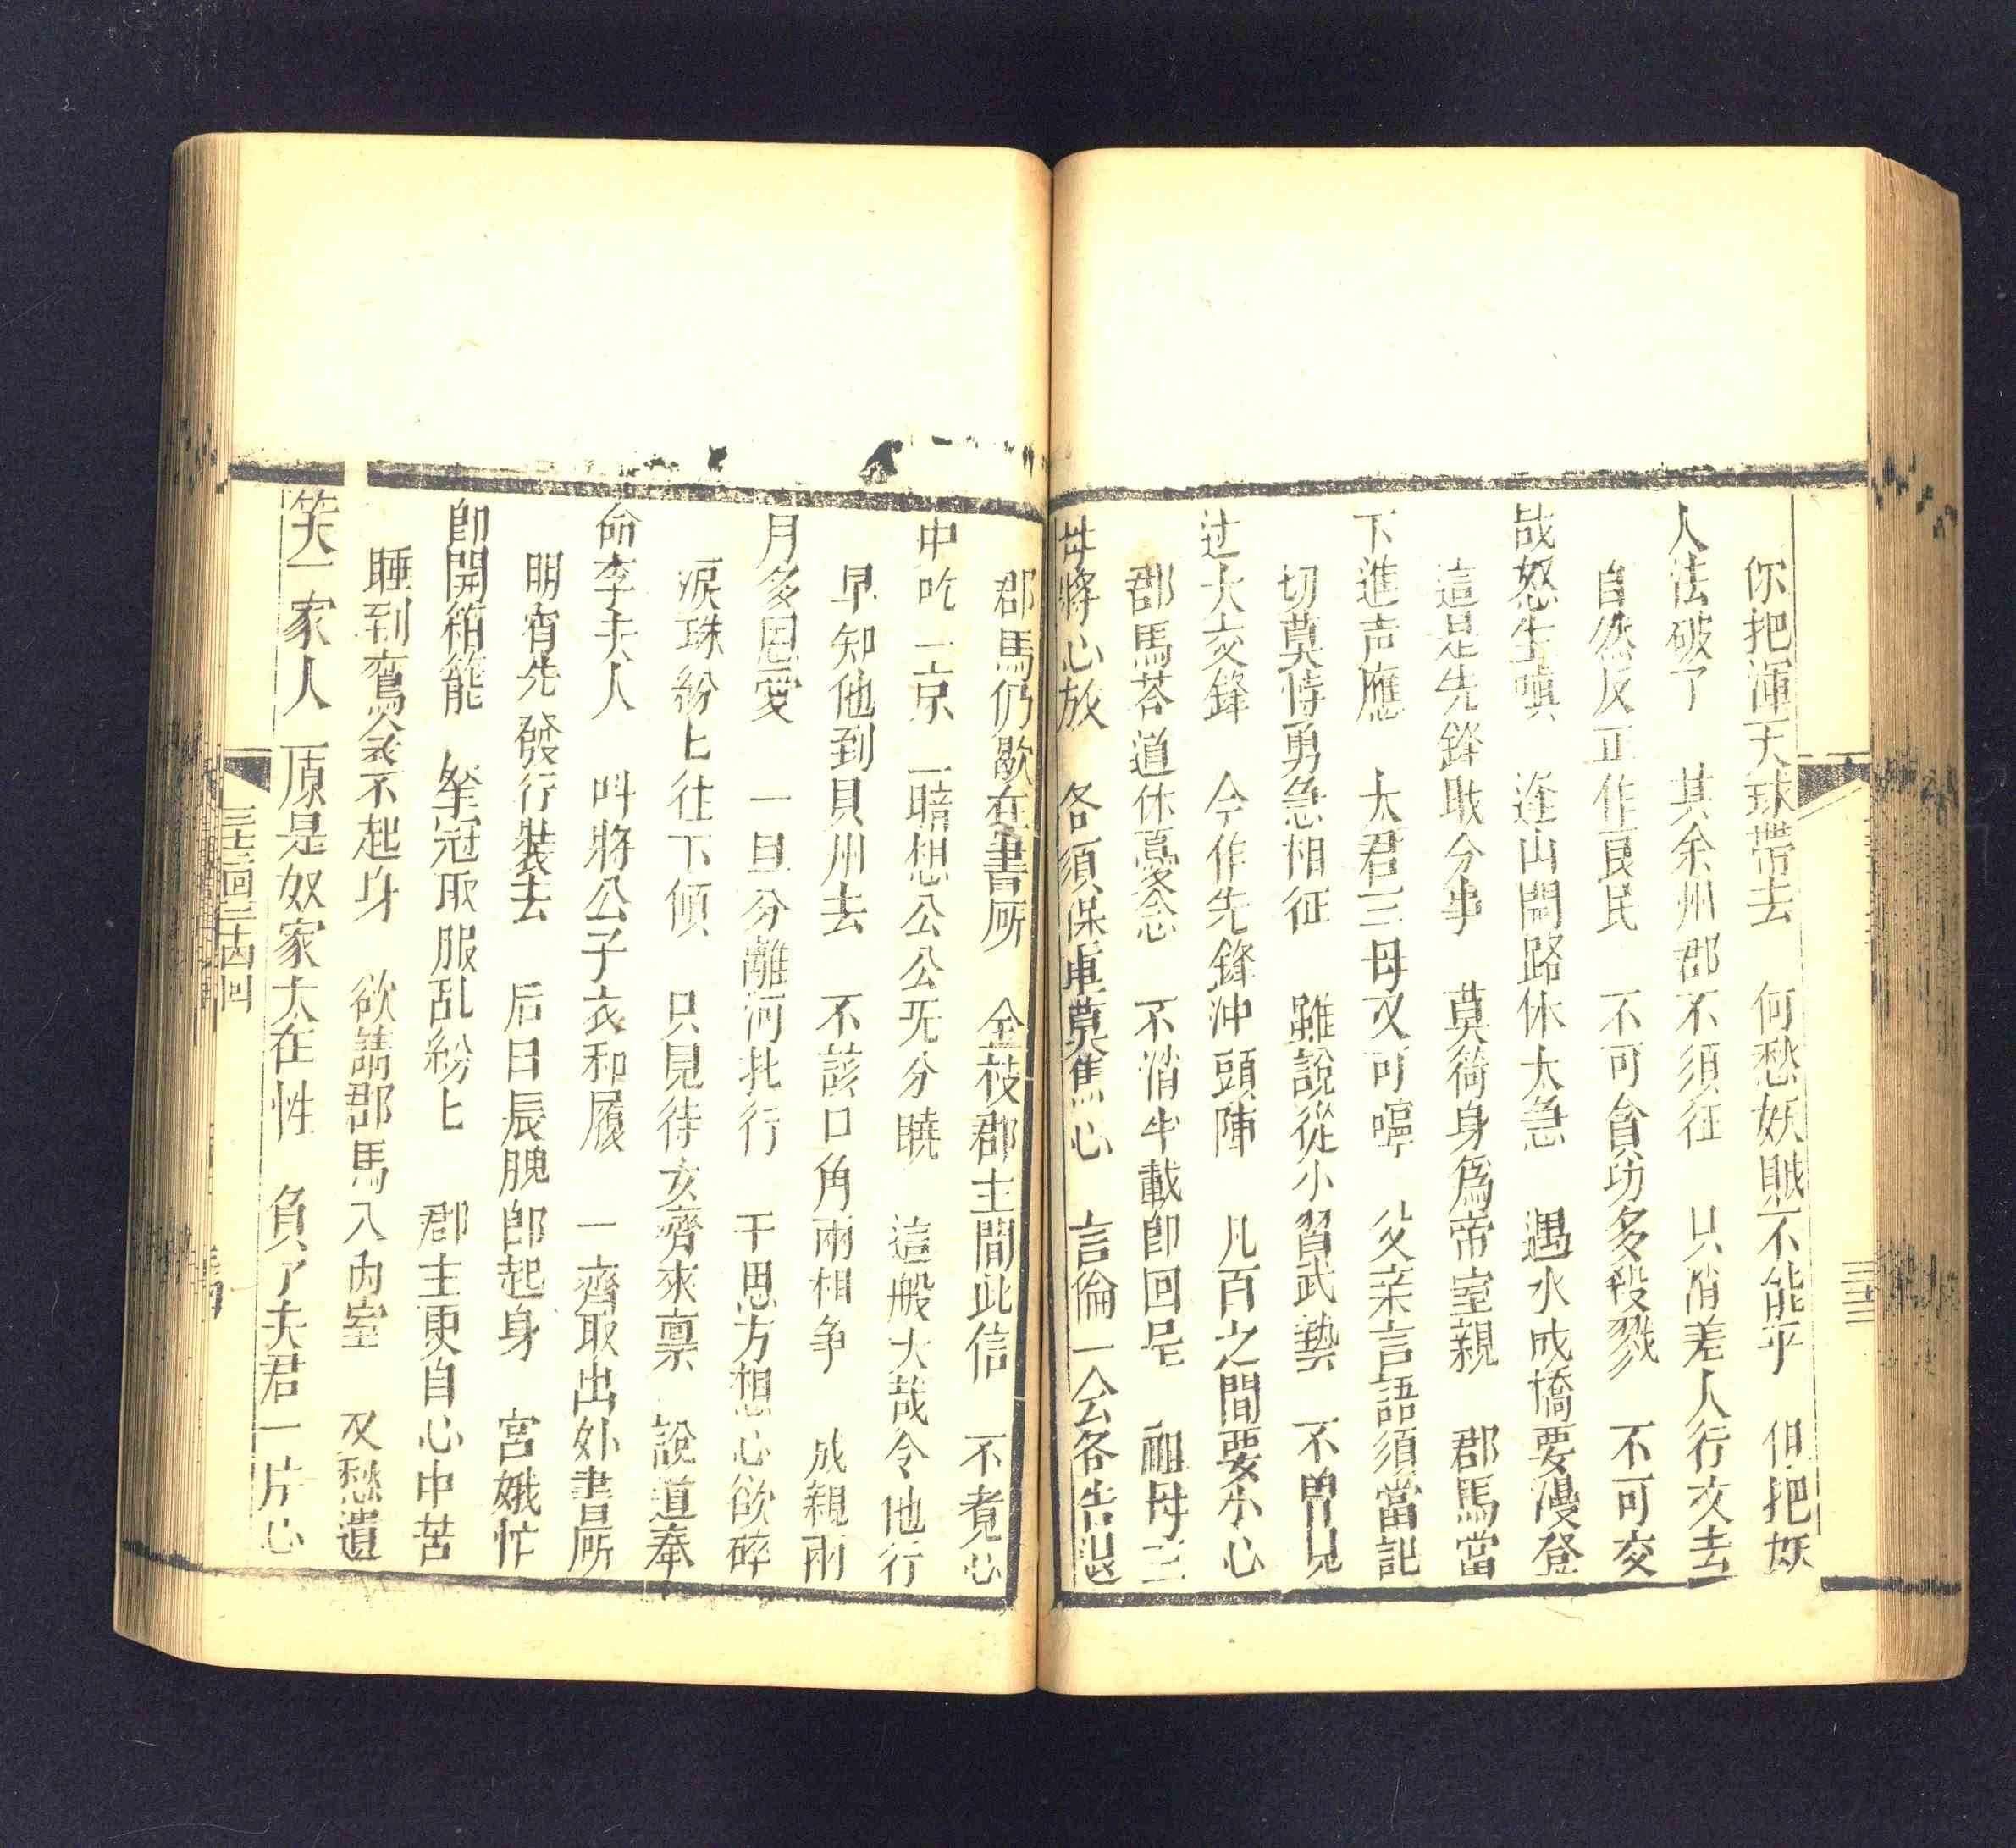 你把渾天球帶去　何愁妖賊不能平　但把妖
人法破了　其余州郡不須征　只消差人行文去
自然反正作良民　不可貪功多殺戮　不可交
战怒生嗔　逢山開路休太急　遇水成橋要漫登
這是先鋒戝分事　莫徛身爲帝室親　郡馬當
下進声應　太君三母又叮嚀　父亲言語須當記
切莫恃勇急相征　雖說從小習武藝　不曽見
过大交鋒　今作先鋒沖頭陣　凡百之間要小心
郡馬荅道休憂念　不消半載即回呈　祖母三
母將心放　各須保重莫焦心　言倫一会各告退
郡馬仍歇在書厛　金枝郡主間此信　不覔心
中吃一京　一暗想公公旡分曉　這般大哉令他行
早知他到貝州去　不該口角兩相争　成親兩
月多恩愛　一旦分離河北行　千思方想心欲碎
淚珠紛匕往下傾　只見待女齊來禀　說道奉
命李夫人　叫將公子衣和履　一齊取出外書厛
明宵先發行装去　后日辰𬂩即起身　宮娥忙
即開箱籠　拏冠取服乱紛匕　郡主更自心中苦
睡到鴛衾不起身　欲請郡馬入內室　又愁遺
笑一家人　原是奴家大在性　負了夫君一片心
三十三回三十四回
三十三